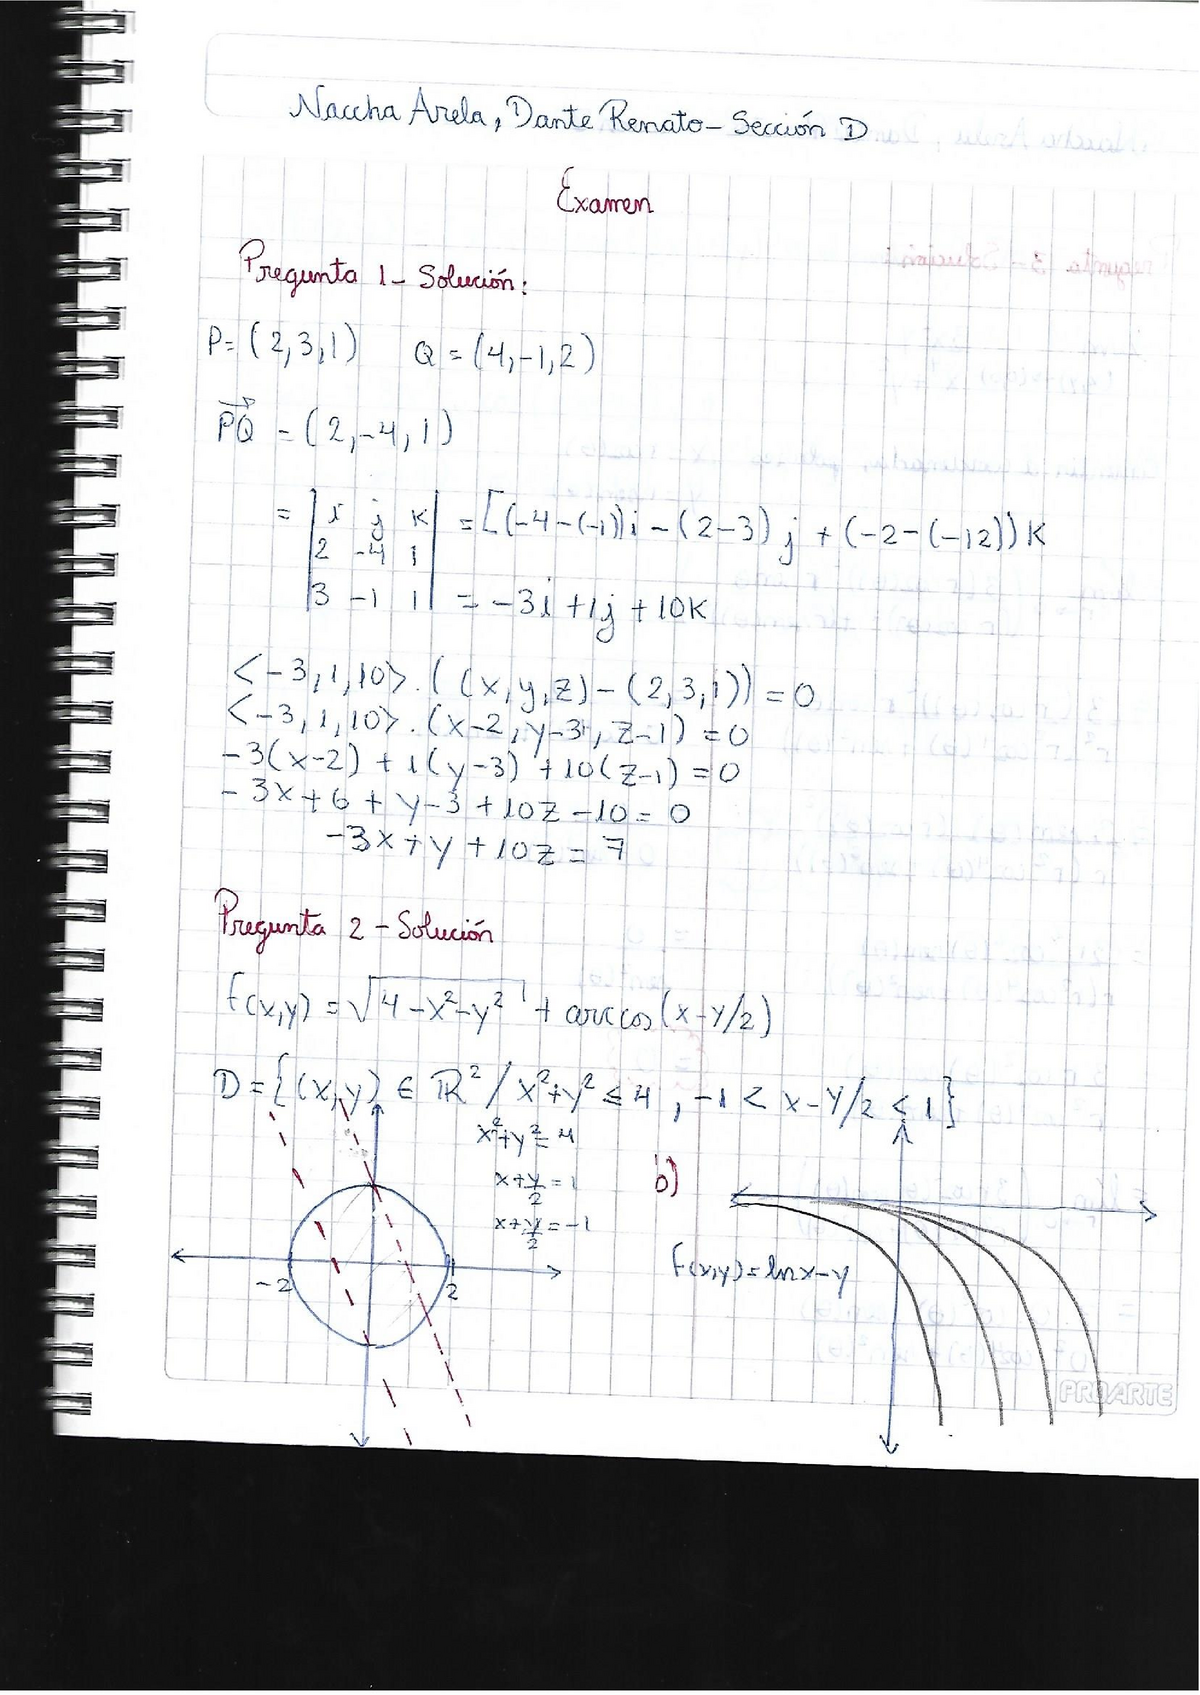 Naccha Arela, Dante Renato - Sección D
Examen
Pregunta 1 - Solución:
P = (2,3,1) Q = (4,-1,2)
PQ = (2,-4,1)
= | i j k | = [(-4-(-1))i - (2-3)j + (-2-(-12))K
2 -4 1
3 -1 1 | = -3i + 1j + 10K
<-3,1,10>. ((x,y,z) - (2,3,1)) = 0
<-3,1,10>. (x-2, y-3, z-1) = 0
-3(x-2) + 1(y-3) + 10(z-1) = 0
-3x + 6 + y - 3 + 10z - 10 = 0
-3x + y + 10z = 7
Pregunta 2 - Solución
f(x,y) = √4-x²-y² + arccos(x-y/2)
D = {(x,y) ∈ ℝ² / x²+y² ≤ 4, -1 < x-y/2 ≤ 1}
x²+y² = 4
x+y/2 = 1
x+y/2 = -1
-2
2
b)
f(x,y) = ln x-y
PROARTE